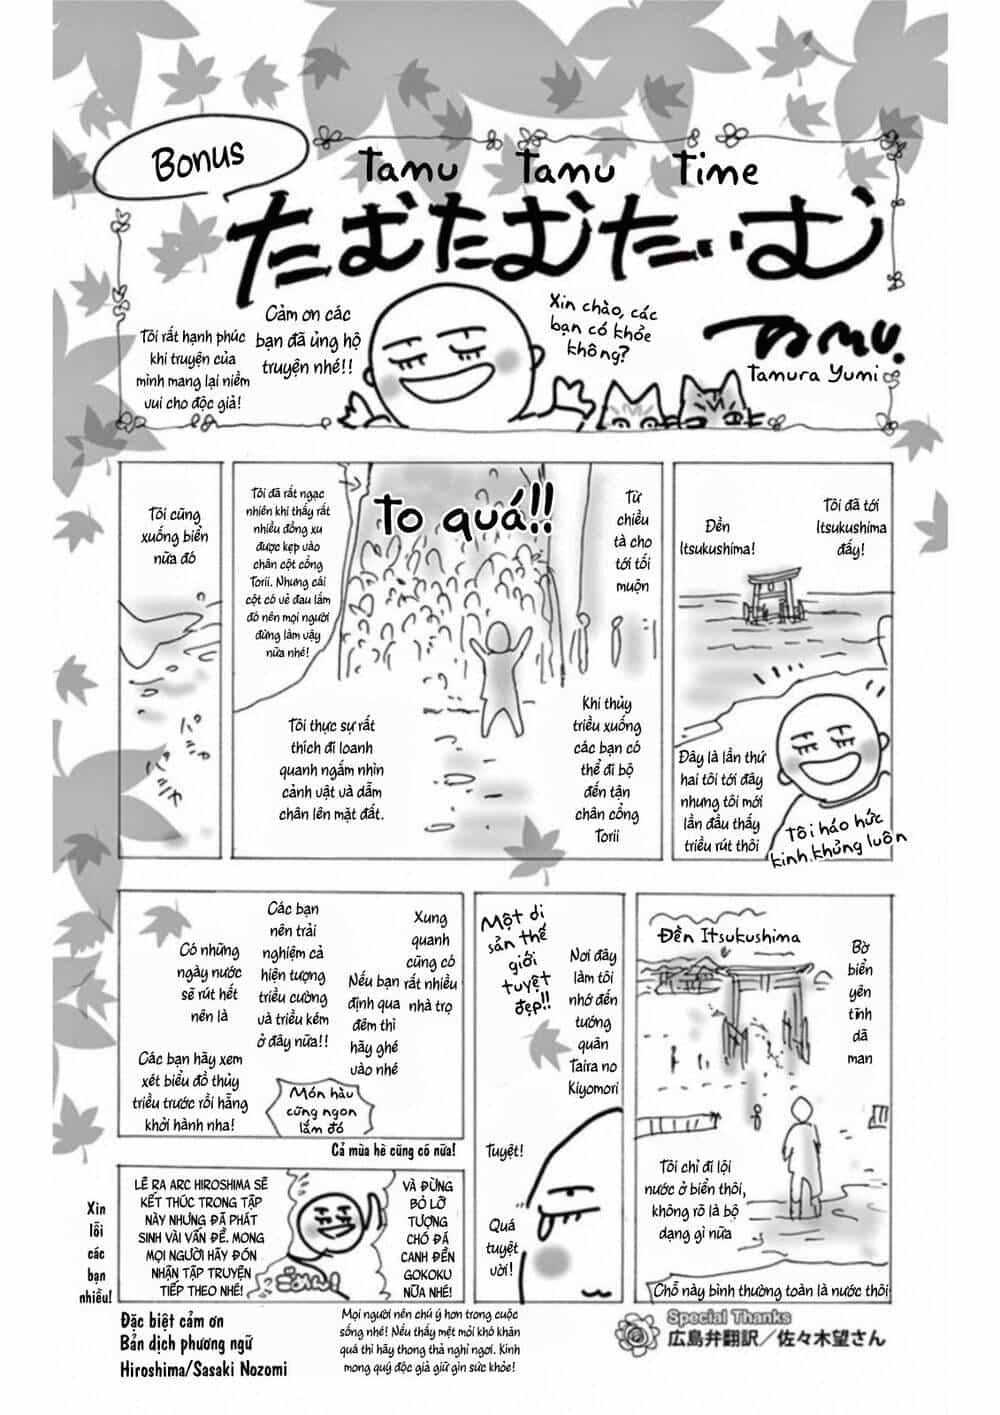 Bonus
Tamu Tamu Time
たむたむたいむ
Xin chào, các
bạn có khỏe
không?
TAMU.
Tamura Yumi
Cảm ơn các
bạn đã ủng hộ
truyện nhé!!
Tôi rất hạnh phúc
khi truyện của
mình mang lại niềm
vui cho độc giả!
Tôi đã tới
Itsukushima
đấy!
Đền
Itsukushima!
Đây là lần thứ
hai tôi tới đây
nhưng tôi mới
lần đầu thấy
triều rút thôi
Tôi háo hức
kinh khủng luôn
Từ
chiều
tà cho
tới tối
muộn
To quá!!
Tôi đã rất ngạc
nhiên khi thấy rất
nhiều đồng xu
được kẹp vào
chân cột cổng
Torii. Nhưng cái
cột có vẻ đau lắm
đó nên mọi người
đừng làm vậy
nữa nhé!
Khi thủy
triều xuống
các bạn có
thể đi bộ
đến tận
chân cổng
Torii
Tôi thực sự rất
thích đi loanh
quanh ngắm nhìn
cảnh vật và dẫm
chân lên mặt đất.
Tôi cũng
xuống biển
nữa đó
パシャ
パシャ
Đền Itsukushima
Bờ
biển
yên
tĩnh
dã
man
Tôi chỉ đi lội
nước ở biển thôi,
không rõ là bộ
dạng gì nữa
Chỗ này bình thường toàn là nước thôi
Một di
sản thế
giới
tuyệt
đẹp!!
Nơi đây
làm tôi
nhớ đến
tướng
quân
Taira no
Kiyomori
Tuyệt!
Quá
tuyệt
vời!
Xung
quanh
cũng có
rất nhiều
nhà trọ
Nếu bạn
định qua
đêm thì
hãy ghé
vào nhé
Các bạn
nên trải
nghiệm cả
hiện tượng
triều cường
và triều kém
ở đây nữa!!
Có những
ngày nước
sẽ rút hết
nên là
Các bạn hãy xem
xét biểu đồ thủy
triều trước rồi hẵng
khởi hành nha!
Món hàu
cũng ngon
lắm đó
Cả mùa hè cũng có nữa!
VÀ ĐỪNG
BỎ LỠ
TƯỢNG
CHÓ ĐÁ
CANH ĐỀN
GOKOKU
NỮA NHÉ!
ごめん!
LẼ RA ARC HIROSHIMA SẼ
KẾT THÚC TRONG TẬP
NÀY NHƯNG ĐÃ PHÁT
SINH VÀI VẤN ĐỀ. MONG
MỌI NGƯỜI HÃY ĐÓN
NHẬN TẬP TRUYỆN
TIẾP THEO NHÉ!
Xin
lỗi
các
bạn
nhiều!
Đặc biệt cảm ơn
Bản dịch phương ngữ
Hiroshima/Sasaki Nozomi
Mọi người nên chú ý hơn trong cuộc
sống nhé! Nếu thấy mệt mỏi khó khăn
quá thì hãy thong thả nghỉ ngơi. Kính
mong quý độc giả giữ gìn sức khỏe!
Special Thanks
広島弁翻訳／佐々木望さん